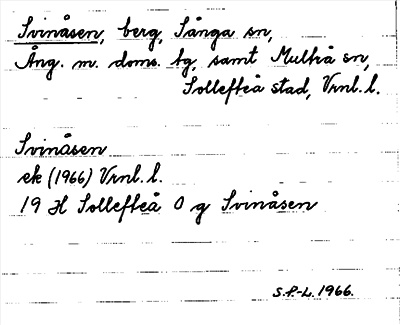 Svinåsen, berg, Sånga sn,
Ång. m. doms. tg, samt Multrå sn,
Sollefteå stad, Vrnl. l.
Svinåsen
ek (1966) Vrnl. l.
19 H Sollefteå 0 g Svinåsen
S.P.-L. 1966.